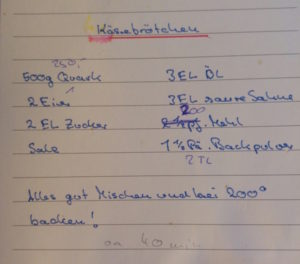 Käsebrötchen
250,-
500g Quark 3 EL ÖL
1
2 Eier 3 EL saure Sahne
200
2 EL Zucker Mehl
Salz 1 ½ Pä. Backpulver
2 TL
Alles gut Mischen und bei 200°
backen!
ca 40 min